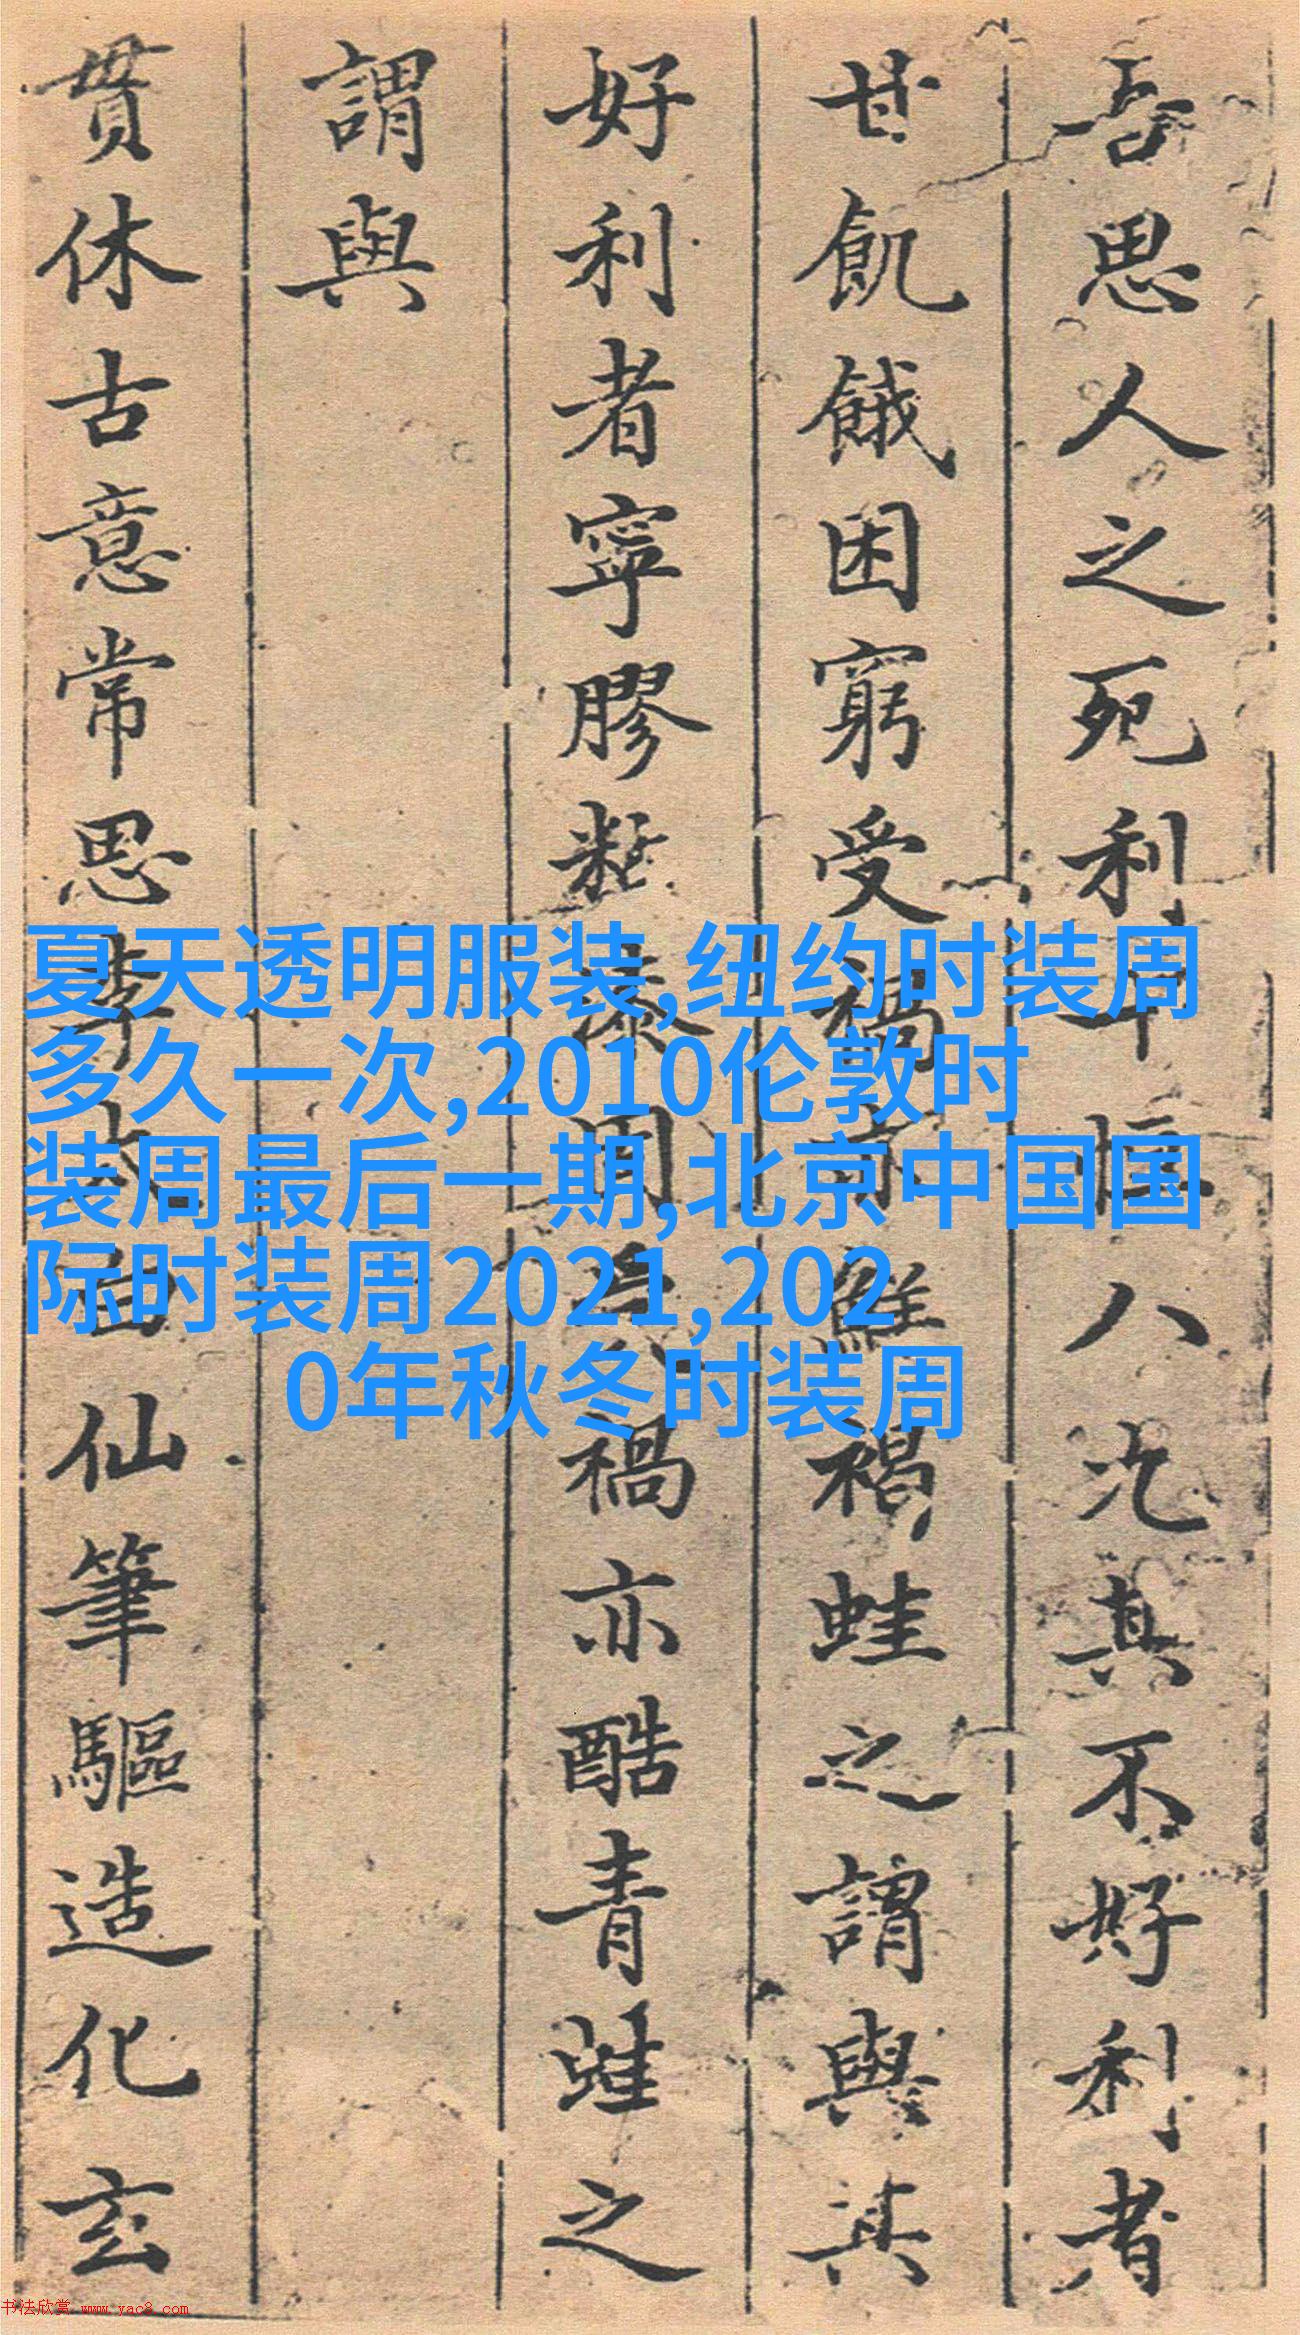 吾思人之死利十恒八九其不好利者
甘飢餓困窮受禍亦鮮褐蛙之謂與其
好利者寧膠黏漆固其禍亦酷青蛙之
謂與
貫休古意常思李太白仙筆驅造化玄
夏天透明服装,纽约时装周
多久一次,2010伦敦时
装周最后一期,北京中国国
际时装周2021,202
0年秋冬时装周
书法欣赏 www.yac8.com